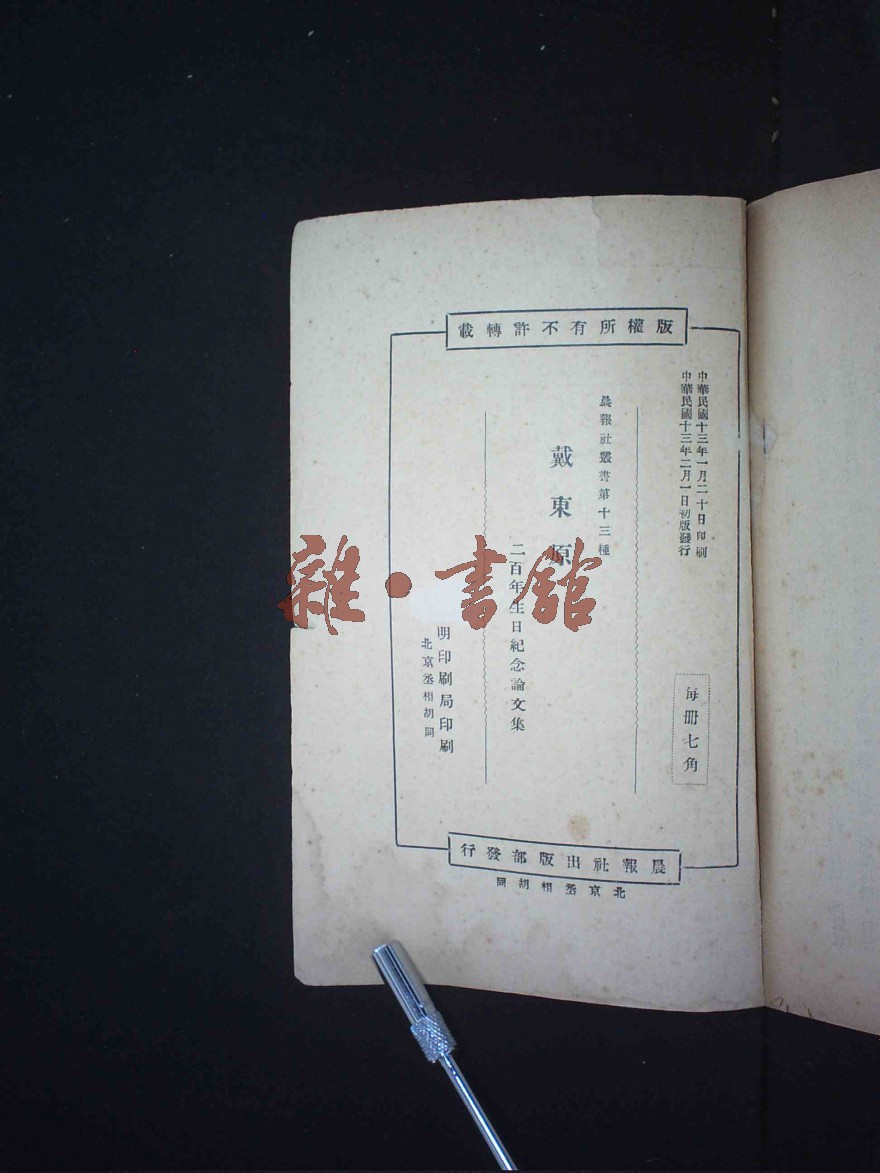 版權所有不許轉載
中華民國十三年一月二十日印刷
中華民國十三年二月一日初版發行
每冊七角
晨報社叢書第十三種
戴東原
二百年生日紀念論文集
明印刷局印刷
北京丞相胡同
晨報社出版部發行
北京丞相胡同
雜·書舘